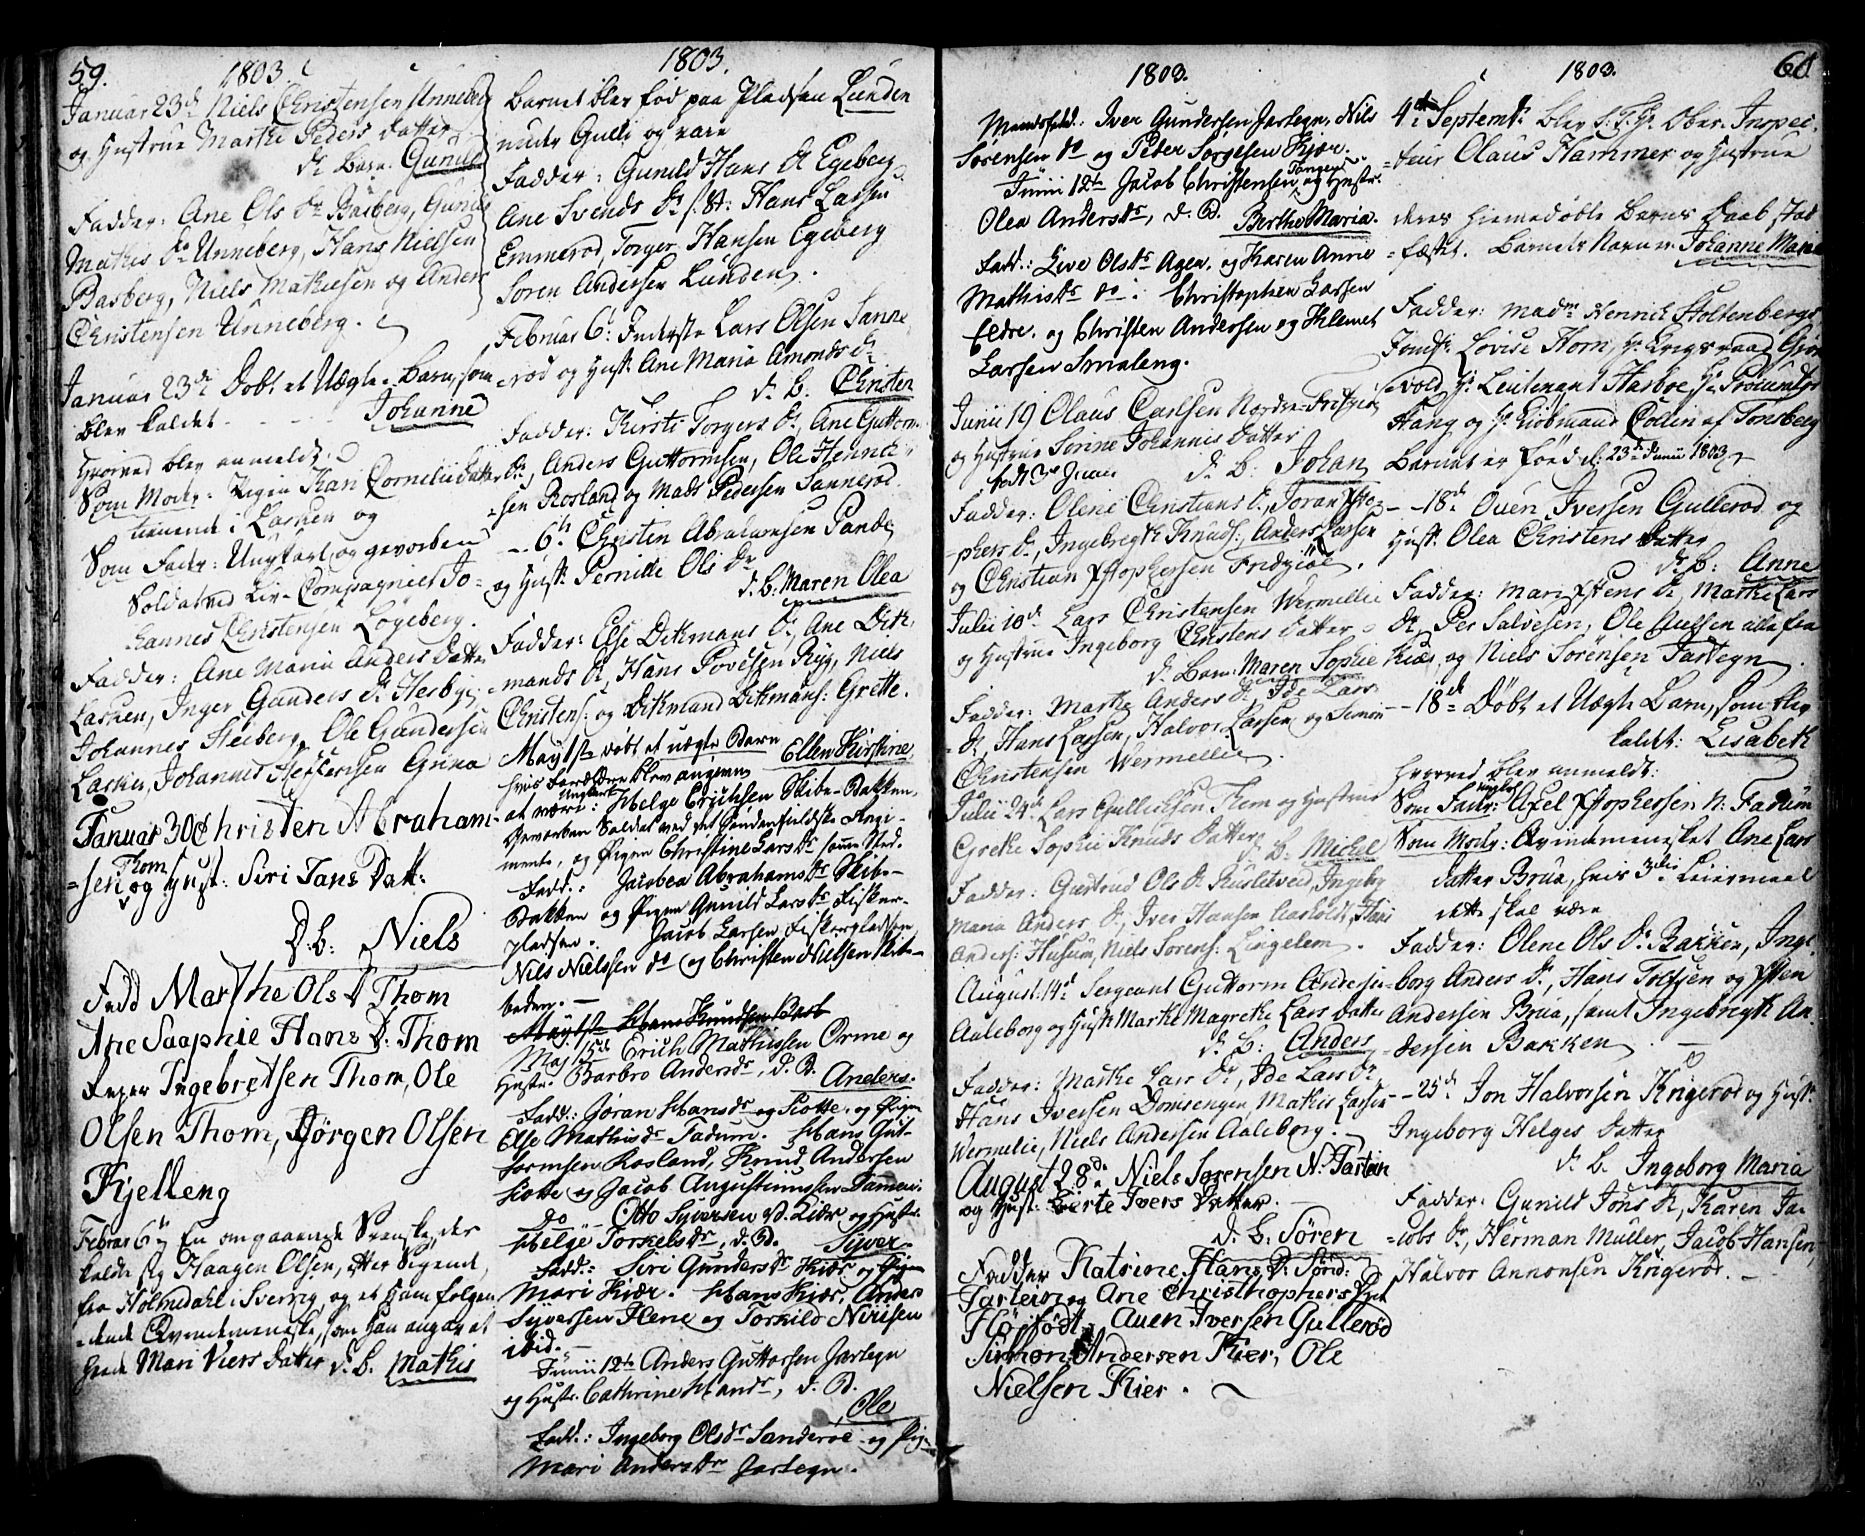 59.
1803.
Januar 23d Niels Christensen Unneberg
og Hustrue Marthe Peders Datter
d. Barn: Gunild
Fadder: Ane Ols Dr Basberg, Gunild
Mathis Dr Unneberg, Hans Nielsen
Basberg, Niels Mathiesen og Anders
Christensen Unneberg.
Januar 23de Døbt et Uægte Barn, som
blev kaldet Johanne
hvorved blev anmeldt:
Som Moder: Pigen Kari Cornelii Datter
tienende i Lasken og
Som Fader: Ungkarl og gevorben
Soldat ved Liv-Compagniet Jo-
hannes Christensen Løgeberg.
Fadder: Ane Maria Anders Datter
Lasken, Inger Gunders Dr Hesby,
Johannes Heiberg, Ole Gundersen
Lasken, Johannes Steffensen Grina
Januar 30 Christen Abraham-
-sen Thom og Hust: Siri Jans Datt:
D: B: Niels
Fadd Marthe Ols D Thom
Ane Saaphie Hans D: Thom
Ingebretsen Thom, Ole
Olsen Thom, Jørgen Olsen
Kjelleng
Februar 6te En omgaaende Svenske, der
kaldte sig Haagen Olsen, efter Sigende,
fra Holmedahl i Sverrig, og et ham følgen-
-dende Qvindemenneske, som han angav at
hede Mari Niers Datter d. B. Mathis
1803.
Barnet blev fød paa Pladsen Lunden
under Gulli og vare
Fadder: Gunild Hans Dr Egeberg,
Ane Svends Dr f. St: Hans Larsen
Emmerød, Torger Hansen Egeberg
Søren Andersen Lunden.
Februar 6: Inderste Lars Olsen Sanne
-rød og Hust: Ane Maria Amonds Dr
d. B. Christen
Fadder: Kirsti Torgers Dr, Ane Guttorm-
Dr, Anders Guttormsen, Ole Henrich-
-sen Rosland og Mads Pedersen Sannerød.
- - 6te Christen Abrahamsen Pande
og Hust: Pernille Ols Dr
d. B: Maren Olea
Fadder: Else Ditmans Dr, Ane Dit-
mands Dr, Hans Povelsen Ryg, Niels
Christens: og Ditmand Ditmans: Grette.
May 1ste døbt et uægte Barn Ellen Kirstine,
hvis Forældre blev angivne
at være: Ungkarl Helge Erichsen Skibe-Bakken,
Gevorben Soldat ved det Søndenfieldske Regi-
mente, og Pigen Christine Lars Dr samme Sted.
Fadd.: Jacobea Abrahams Dr Skibe-
Bakken og Pigen Gunild Lars Dr Fisker-
pladsen. Jacob Larsen Fiskerpladsen,
Nils Nielssen do og Christen Nielsen Skibe-
beden.
May 1ste Hans Knudsen Barb
Maj 15de Erich Mathissen Orme og
Hustr. Barbro Andersdr, d. B. Anders.
Fadd.: Jøran Hansdr og Siotte, og Pigen
Else Mathisdr Fadum. Hans Gut-
tormsen Rosland, Knud Andersen
Siotte og Jacob Augustinussen Sammen.
Do Otto Syversen Kiær og Hustr.
Helge Torkelsdr, d. B. Syver.
Fadd.: Siri Gundersdr Kiær og Pigen
Mari Kiær. Hans Kiær, Anders
Syversen Ilene og Torkild Nirisen
ibid.
Junii 12te Anders Guttorsen Jartegn
og Hustr. Cathrine Handr, d. B.
Ole
Fadd.: Ingeborg Olsdr Sanderøe og Pig:
Mari Andersdr Jartegn.
1803.
Mandfold.: Iver Gundersen Jartegn. Nils
Sørensen do og Peder Sørgesen Kjær.
Junii 12te Jacob Christensen Tangen og Hustr.
Olea Andersdr, d. B. Berthe Maria.
Fadd.: Live Olsdr Agen. og Karen Anne
Mathisdr do. Christopher Larsen
Eldre. og Christen Andersen og Klemet
Larsen Smaleng.
Junii 19 Olaus Carlsen Nordre-Fritzøe
og Hustrue Sønne Johannis Datter
født 3de Junii d. B: Johan
Fadder: Olene Christians Dr, Joran Xsto-
-phers Dr, Ingebregth Knuds: Anders Larsen
og Christian Xstophersen Fridziøe.
Julii 10d Lars Christensen Wermellie
og Hustrue Ingeborg Christens Datter
d. Barn: Maren Sophie
Fadder: Marthe Anders Dr, Ide Lars
Dr, Hans Larsen, Halvor Larsen og Simon
Christensen Wermellie.
Julii 24de Lars Gullichsen Thom og Hustrue
Grethe Sophie Knuds Datter
d. B: Michel
Fadder: Giertrud Ols Dr Rusletveid, Ingebg
Maria Anders Dr, Iver Hansen Aasholdt, Hans
Anders: Husum, Niels Sørens: Lingelem.
August: 14d Sergeant Guttorm Andersen
Aaleborg og Hust: Marthe Magrethe Lars Datter
d. B: Anders
Fadder: Marthe Lars Dr, Ide Lars Dr
Hans Iversen Domsengen, Mathis Larsen
Wermelie, Niels Andersen Aaleborg.
August 28de Niels Sørensen N. Jartein
og Hust: Berte Ivers Datter.
d. B: Søren
Fadder Katrine Hans D: Sønd:
Jartein og Ane Christhophers D
Høifødt. Auen Iversen Gullerød
Simon Andersen Kier, Ole
Nielsen Kier.
1803.
60
4de Septembr: blev S. T. Hr. Ober-Inspec-
-teur Olaus Hammer og Hustrue
deres hiemedøbte Barns Daab stad-
-fæstet. Barnets Navn er Johanne Marie
Fadder: Madme Henrich Stoltenbergs
Jomfr: Lovise Horn, Hr. Krigsraad Grøn-
-vold, Hr. Leutenant Hasboe, Hr. Procurator
Stang og Hr. Kiøbmand Collen af Tønsberg
Barnet er fød d: 23de Junii 1803.
- - 18de Ouen Iversen Gullerød og
Hust: Olea Christens Datter
d. B: Anne
Fadder: Mari Xstens Dr, Marthe Lars
Dr, Per Salvesen, Ole Nielsen alle fra
Kiær, og Niels Sørensen Jartegn.
- - 18de Døbt et Uægte Barn, som blev
kaldet: Lisabeth
hvorved blev anmeldt:
Som Fader: Ungkarl Axel Xstophersen N. Fadum
Som Moder: Qvindemennesket Ane Lars
datter Brua, hvis 3die Leiermaal
dette skal være
Fadder: Olene Ols Dr Bakken, Inge-
-borg Anders Dr, Hans Tolfsen og Xsten
Andersen Brua, samt Ingebregth An-
-dersen Bakken.
- - 25de Jon Halvorsen Krigerød og Hust:
Ingeborg Helges Datter
d. B. Ingeborg Maria
Fadder: Gunild Jons Dr, Karen Ja-
-cobs Dr, Herman Muller, Jacob Hansen,
Halvor Annonsen Krigerød.